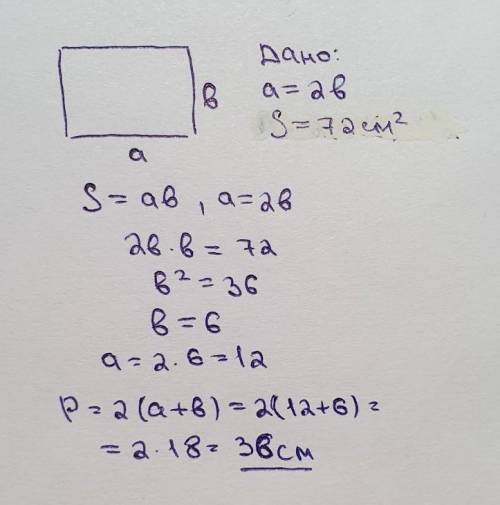 Дано:
a = 2в
S = 72 см²
в
a
S = aв , a = 2в
2в · в = 72
в² = 36
в = 6
a = 2 · 6 = 12
P = 2(a + в) = 2(12 + 6) =
= 2 · 18 = 36 см